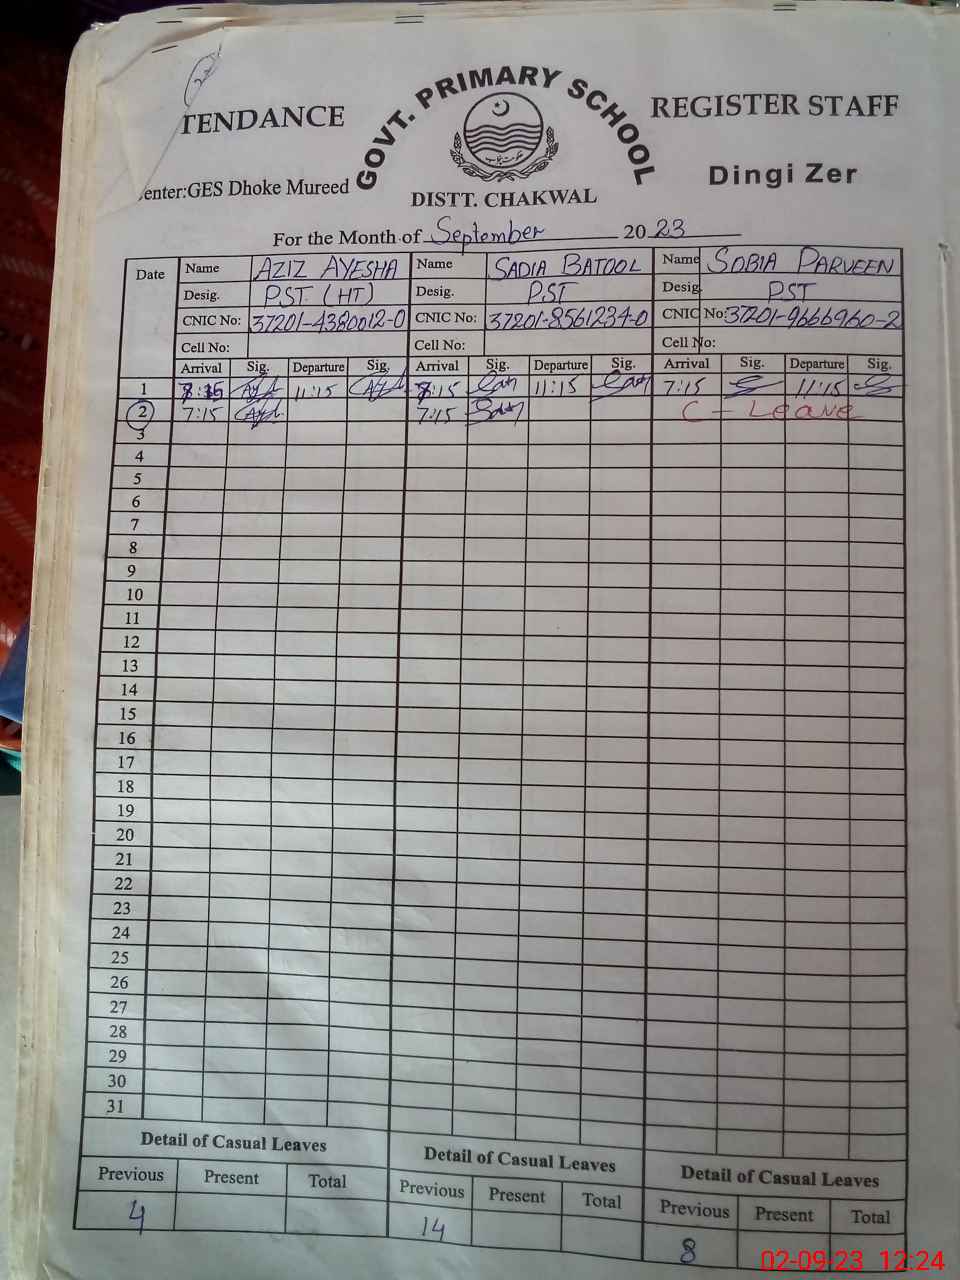 TENDANCE
GOVT. PRIMARY SCHOOL
REGISTER STAFF
enter:GES Dhoke Mureed
DISTT. CHAKWAL
Dingi Zer
For the Month of September 2023
Date Name AZIZ AYESHA Name SADIA BATOOL Name SOBIA PARVEEN
Desig. PST (HT) Desig. PST Desig. PST
CNIC No: 37201-4380012-0 CNIC No: 37201-8561234-0 CNIC No: 37201-9666960-2
Cell No: Cell No: Cell No:
Arrival Sig. Departure Sig. Arrival Sig. Departure Sig. Arrival Sig. Departure Sig.
1 11:15 :15 11:15 7:15 11:15
2 7:15 7:15 C - Leave
3
4
5
6
7
8
9
10
11
12
13
14
15
16
17
18
19
20
21
22
23
24
25
26
27
28
29
30
31
Detail of Casual Leaves Detail of Casual Leaves Detail of Casual Leaves
Previous Present Total Previous Present Total Previous Present Total
4 14 8
02-09-23 12:24